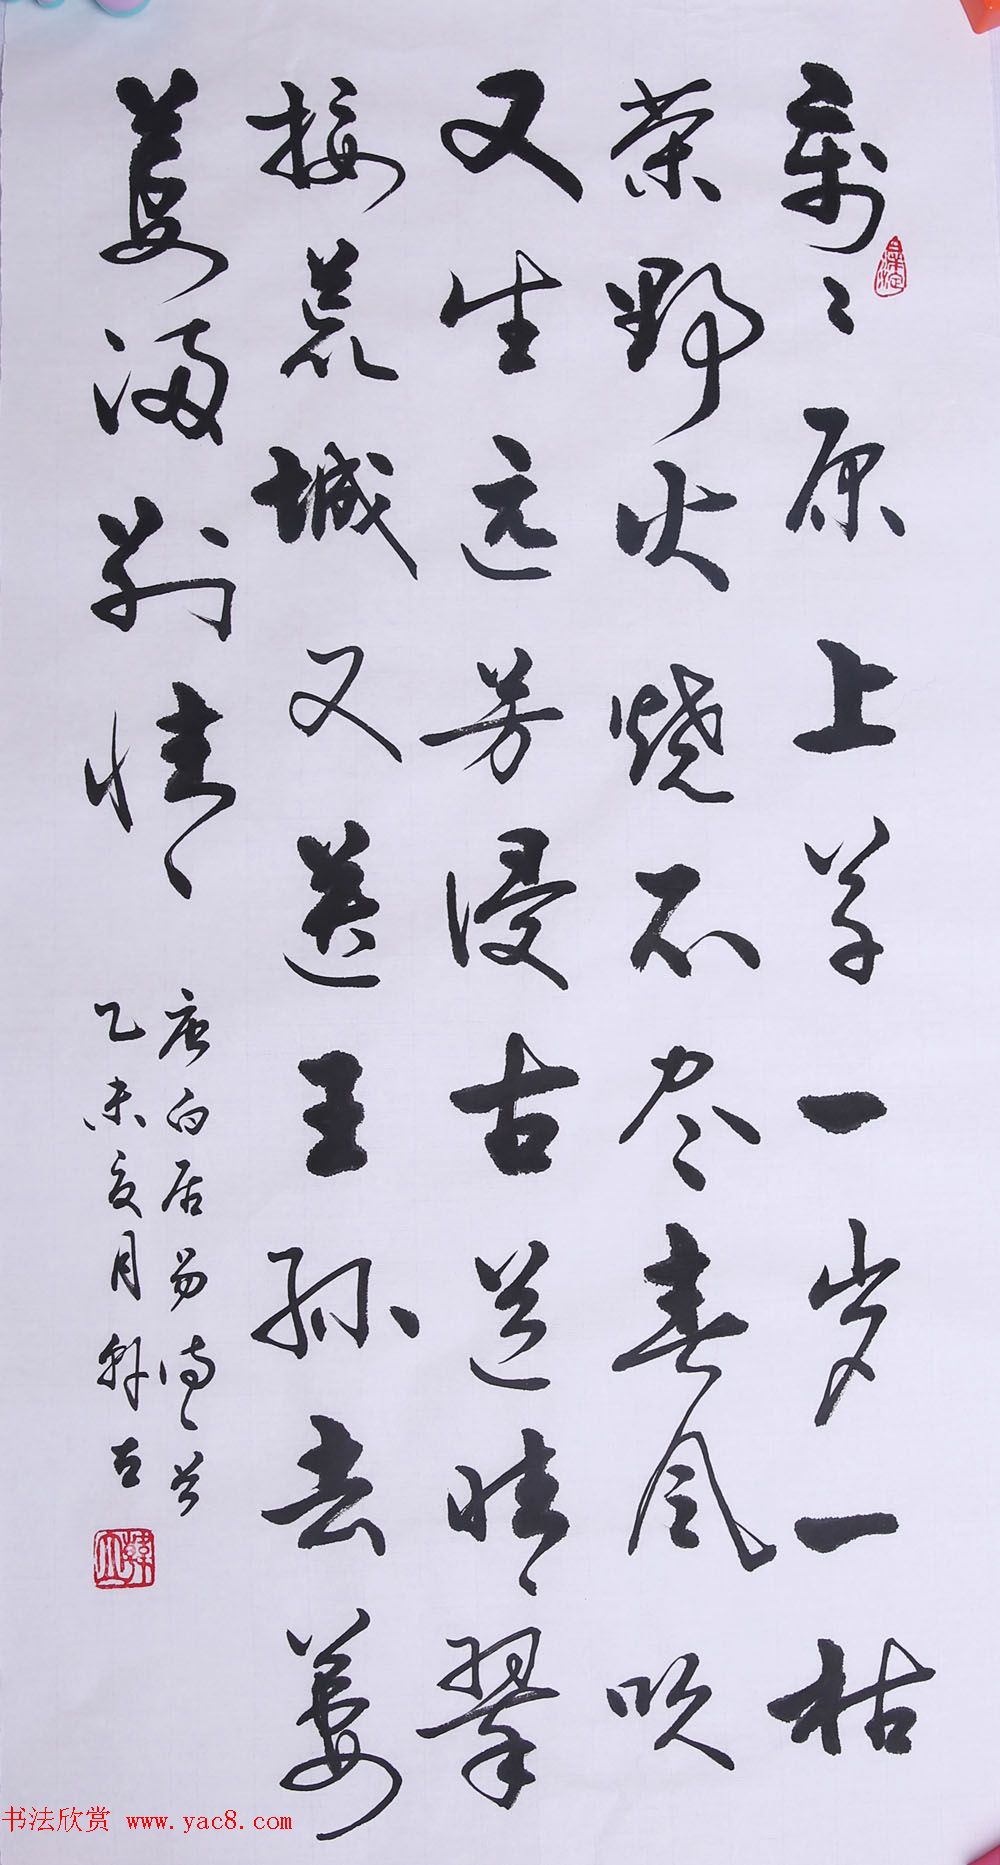 离々原上草一岁一枯
荣野火烧不尽春风吹
又生远芳侵古道晴翠
接荒城又送王孙去萋
萋满别情
唐白居易诗一首
乙未夏月
书法欣赏 www.yac8.com